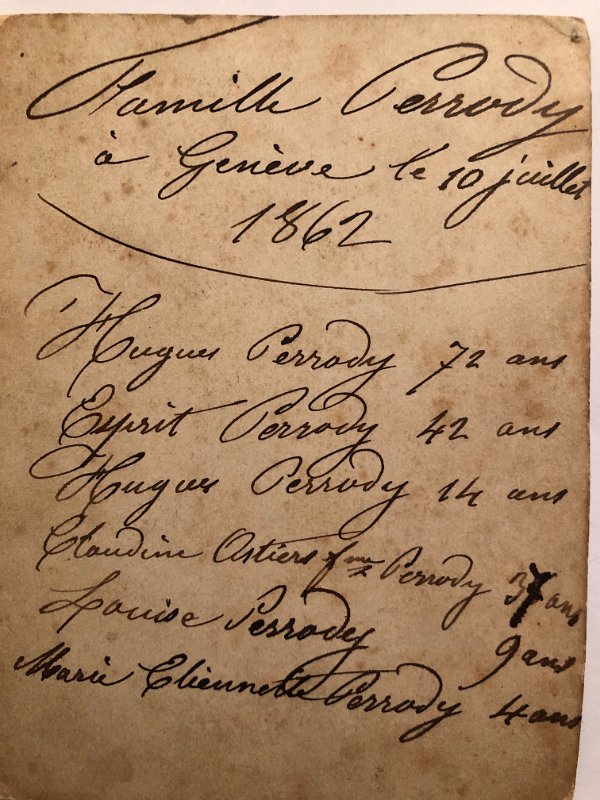 Famille Perrody
à Genève le 10 juillet
1862
Hugues Perrody 72 ans
Esprit Perrody 42 ans
Hugues Perrody 14 ans
Claudine Astiers fme Perrody 37 ans
Louise Perrody 9 ans
Marie Etiennette Perrody 4 ans